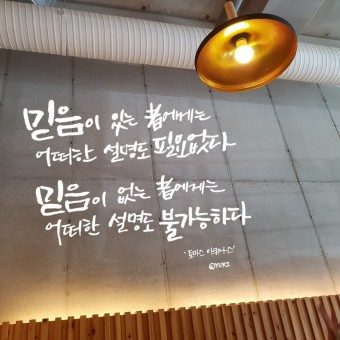 믿음이 있는 者에게는
어떠한 설명도 필요없다
믿음이 없는 者에게는
어떠한 설명도 불가능하다
-토마스 아퀴나스-